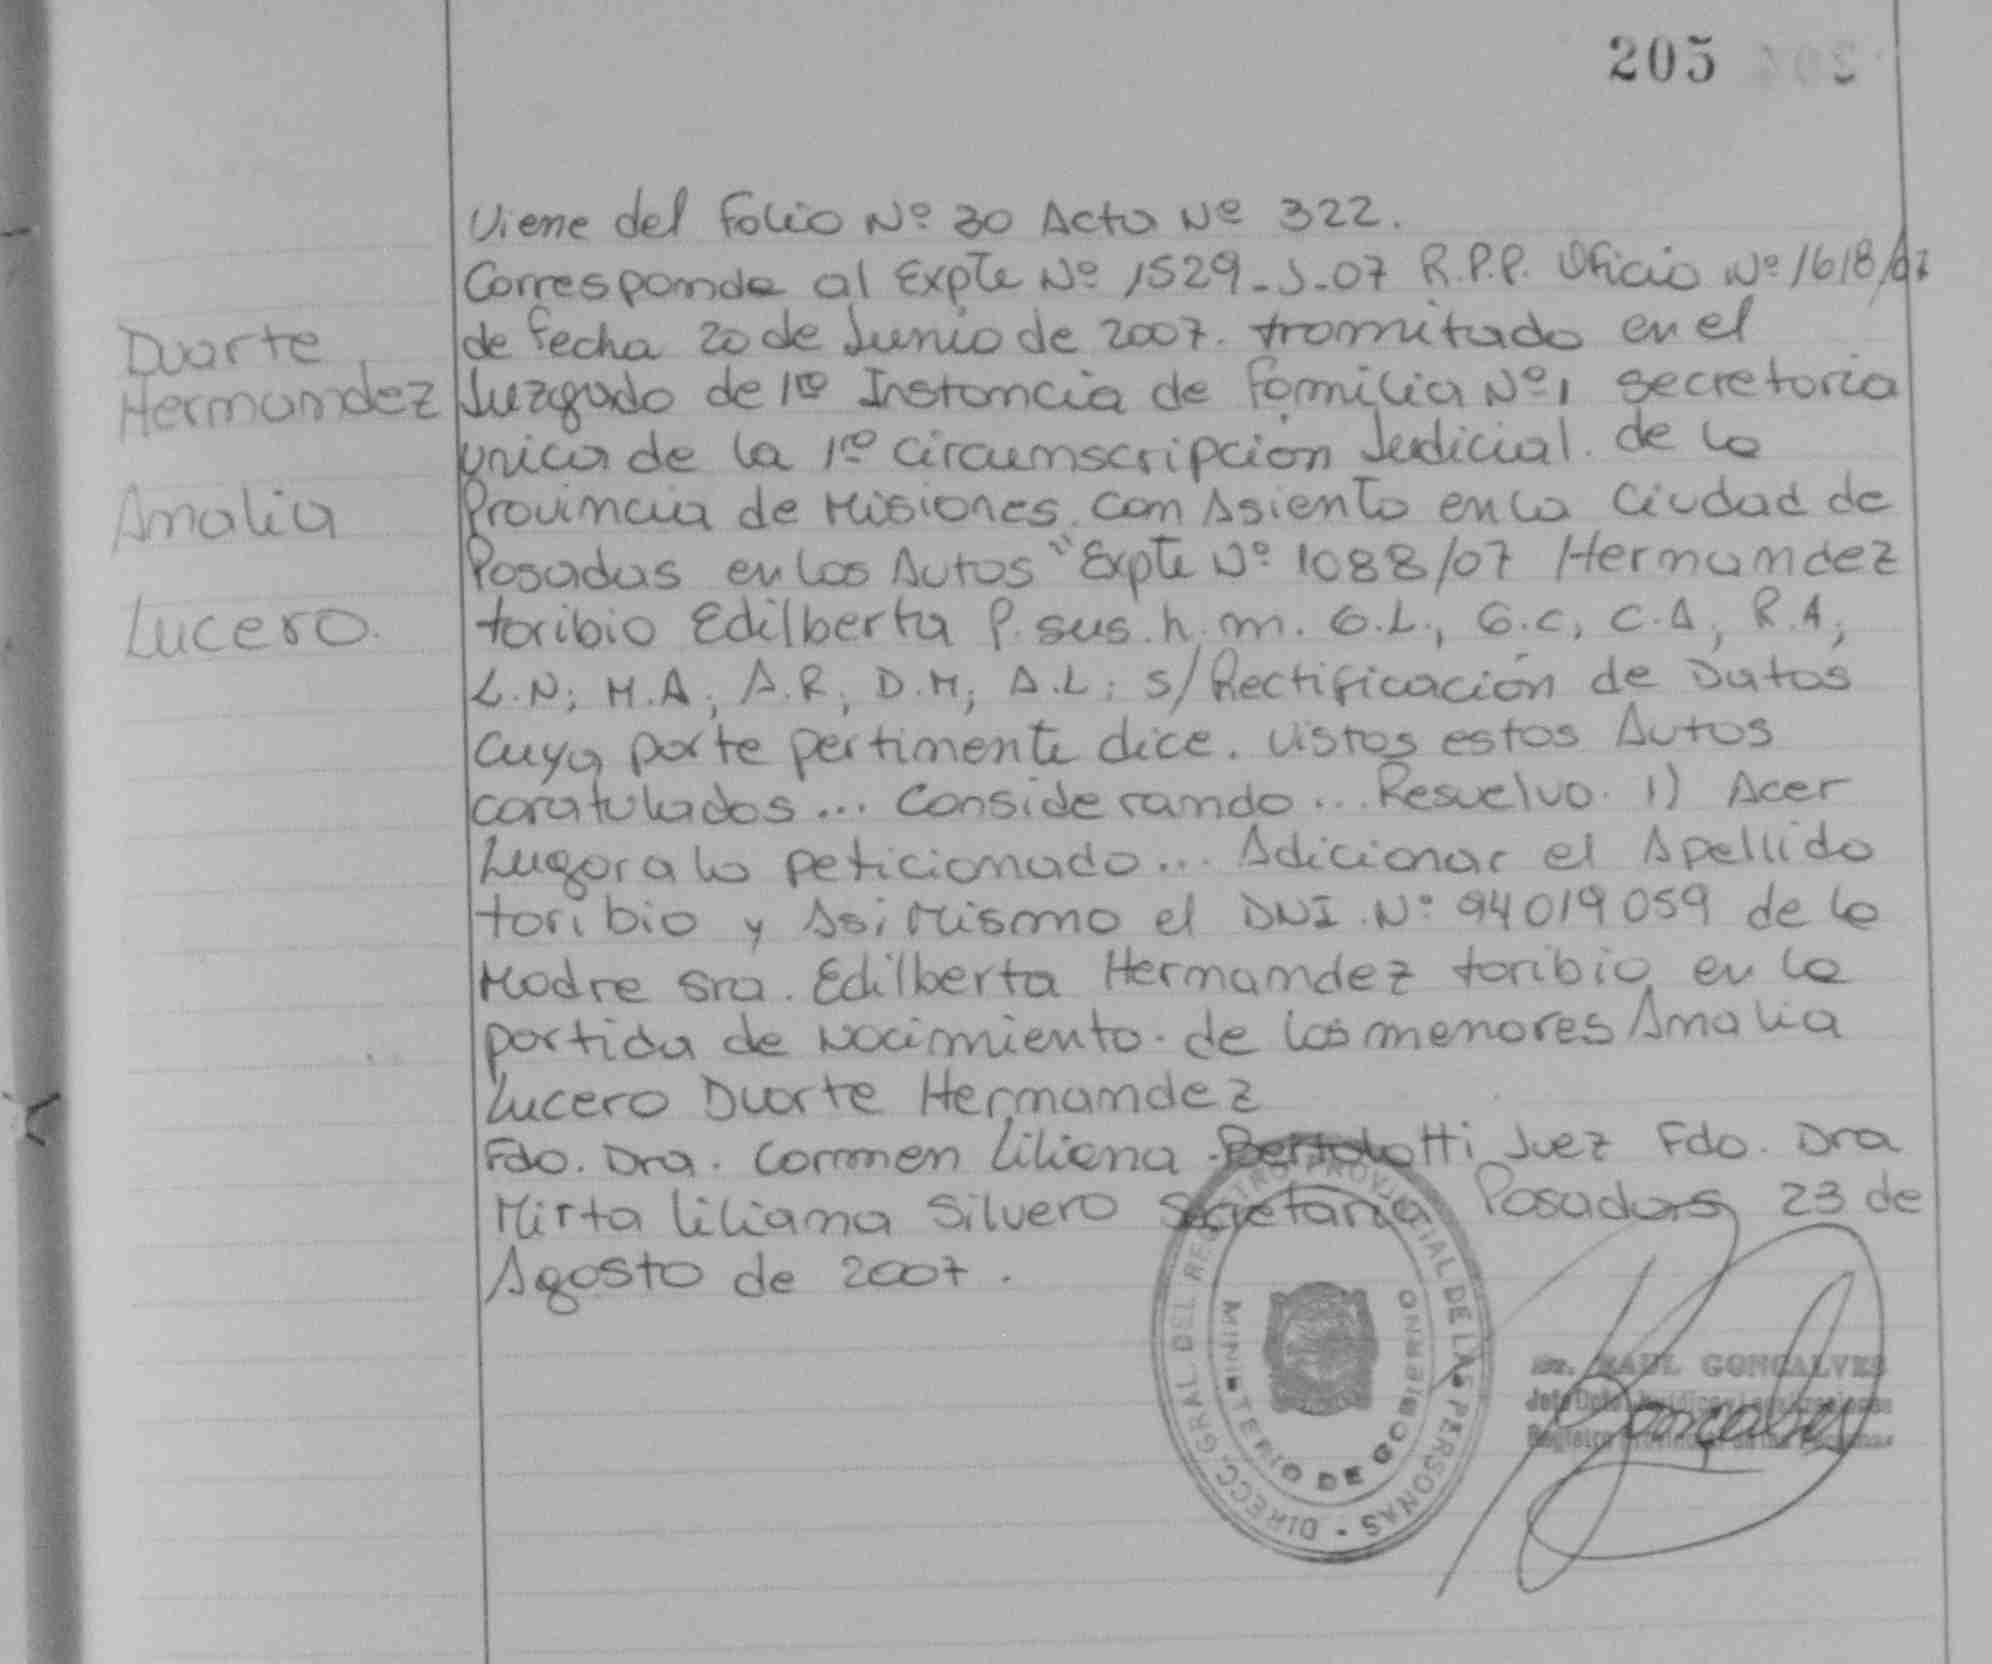 205
Duarte
Hernandez
Amalia
Lucero.
Viene del Folio Nº 30 Acta Nº 322.
Corresponde al Expte Nº 1529-J-07 R.P.P. Oficio Nº 1618/07
de fecha 20 de Junio de 2007. tramitado en el
Juzgado de 1ra Instancia de Familia Nº 1 secretaria
unica de la 1ra circunscripción Judicial. de la
Provincia de Misiones con Asiento en la Ciudad de
Posadas en los Autos "Expte Nº 1088/07 Hernandez
toribio Edilberta P. sus. h. m. G.L., G.C, C.A, R.A,
L.N; M.A; A.R; D.M; A.L; s/Rectificación de Datos
cuya parte pertinente dice. vistos estos Autos
caratulados... Considerando... Resuelvo. 1) Acer
Lugar a lo peticionado... Adicionar el Apellido
toribio y Asi Mismo el DNI Nº 94019059 de la
Madre Sra. Edilberta Hernandez toribio en la
partida de nacimiento. de los menores Amalia
Lucero Duarte Hernandez
Fdo. Dra. Carmen Liliana Bertolotti Juez Fdo. Dra
Mirta Liliana Silvero Secretaria Posadas 23 de
Agosto de 2007.
DIRECC. GRAL DEL REGISTRO PROVINCIAL DE LAS PERSONAS
MINISTERIO DE GOBIERNO
RAUL GONCALVES